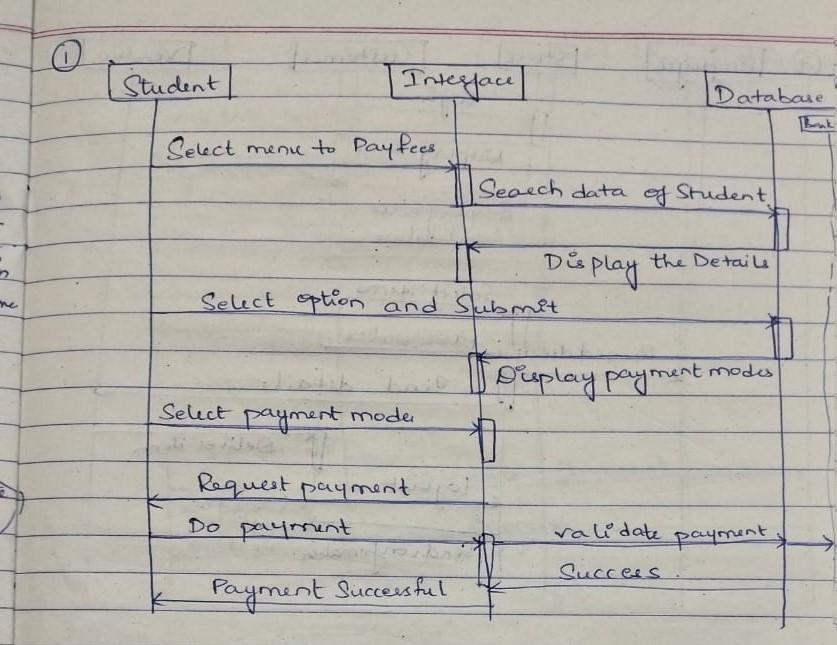 1
Student Interface Database
Bank
Select menu to Pay fees
Search data of Student
Display the Details
Select option and Submit
Display payment modes
Select payment mode
Request payment
Do payment validate payment
Success.
Payment Successful